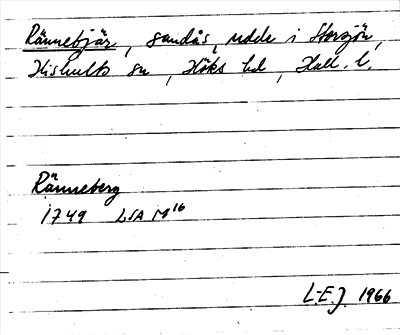 Rännebjär, sandås, udde i Storsjön,
Hishults sn, Höks hd, Hall. l.
Ränneberg
1749 LSA M16
L-E.J. 1966